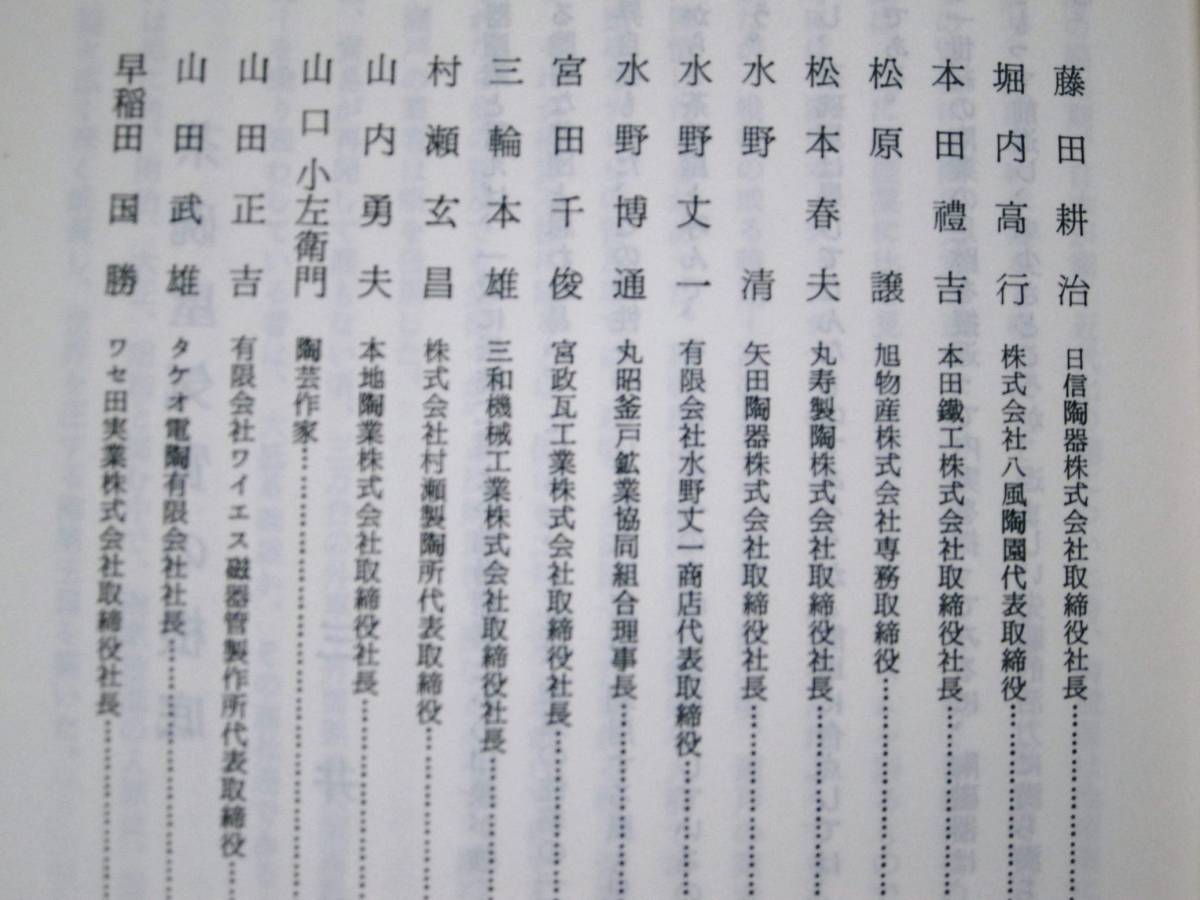 藤田耕治 日信陶器株式会社取締役社長
堀内高行 株式会社八風陶園代表取締役
本田禮吉 本田鐵工株式会社取締役社長
松原譲 旭物産株式会社専務取締役
松本春夫 丸寿製陶株式会社取締役社長
水野清 矢田陶器株式会社取締役社長
水野丈一 有限会社水野丈一商店代表取締役
水野博通 丸昭釜戸鉱業協同組合理事長
宮田千俊 宮政瓦工業株式会社取締役社長
三輪本雄 三和機械工業株式会社取締役社長
村瀬玄昌 株式会社村瀬製陶所代表取締役
山内勇夫 本地陶業株式会社取締役社長
山口小左衛門 陶芸作家
山田正吉 有限会社ワイエス磁器管製作所代表取締役
山田武雄 タケオ電陶有限会社社長
早稲田国勝 ワセ田実業株式会社取締役社長